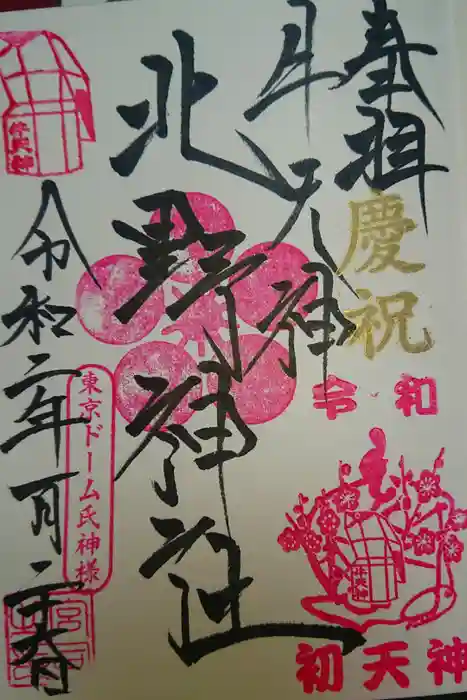 奉拝
慶祝
令和
牛天神
初天神
牛天神
北野神社
牛天神
令和二年一月二十五日
東京ドーム氏神様